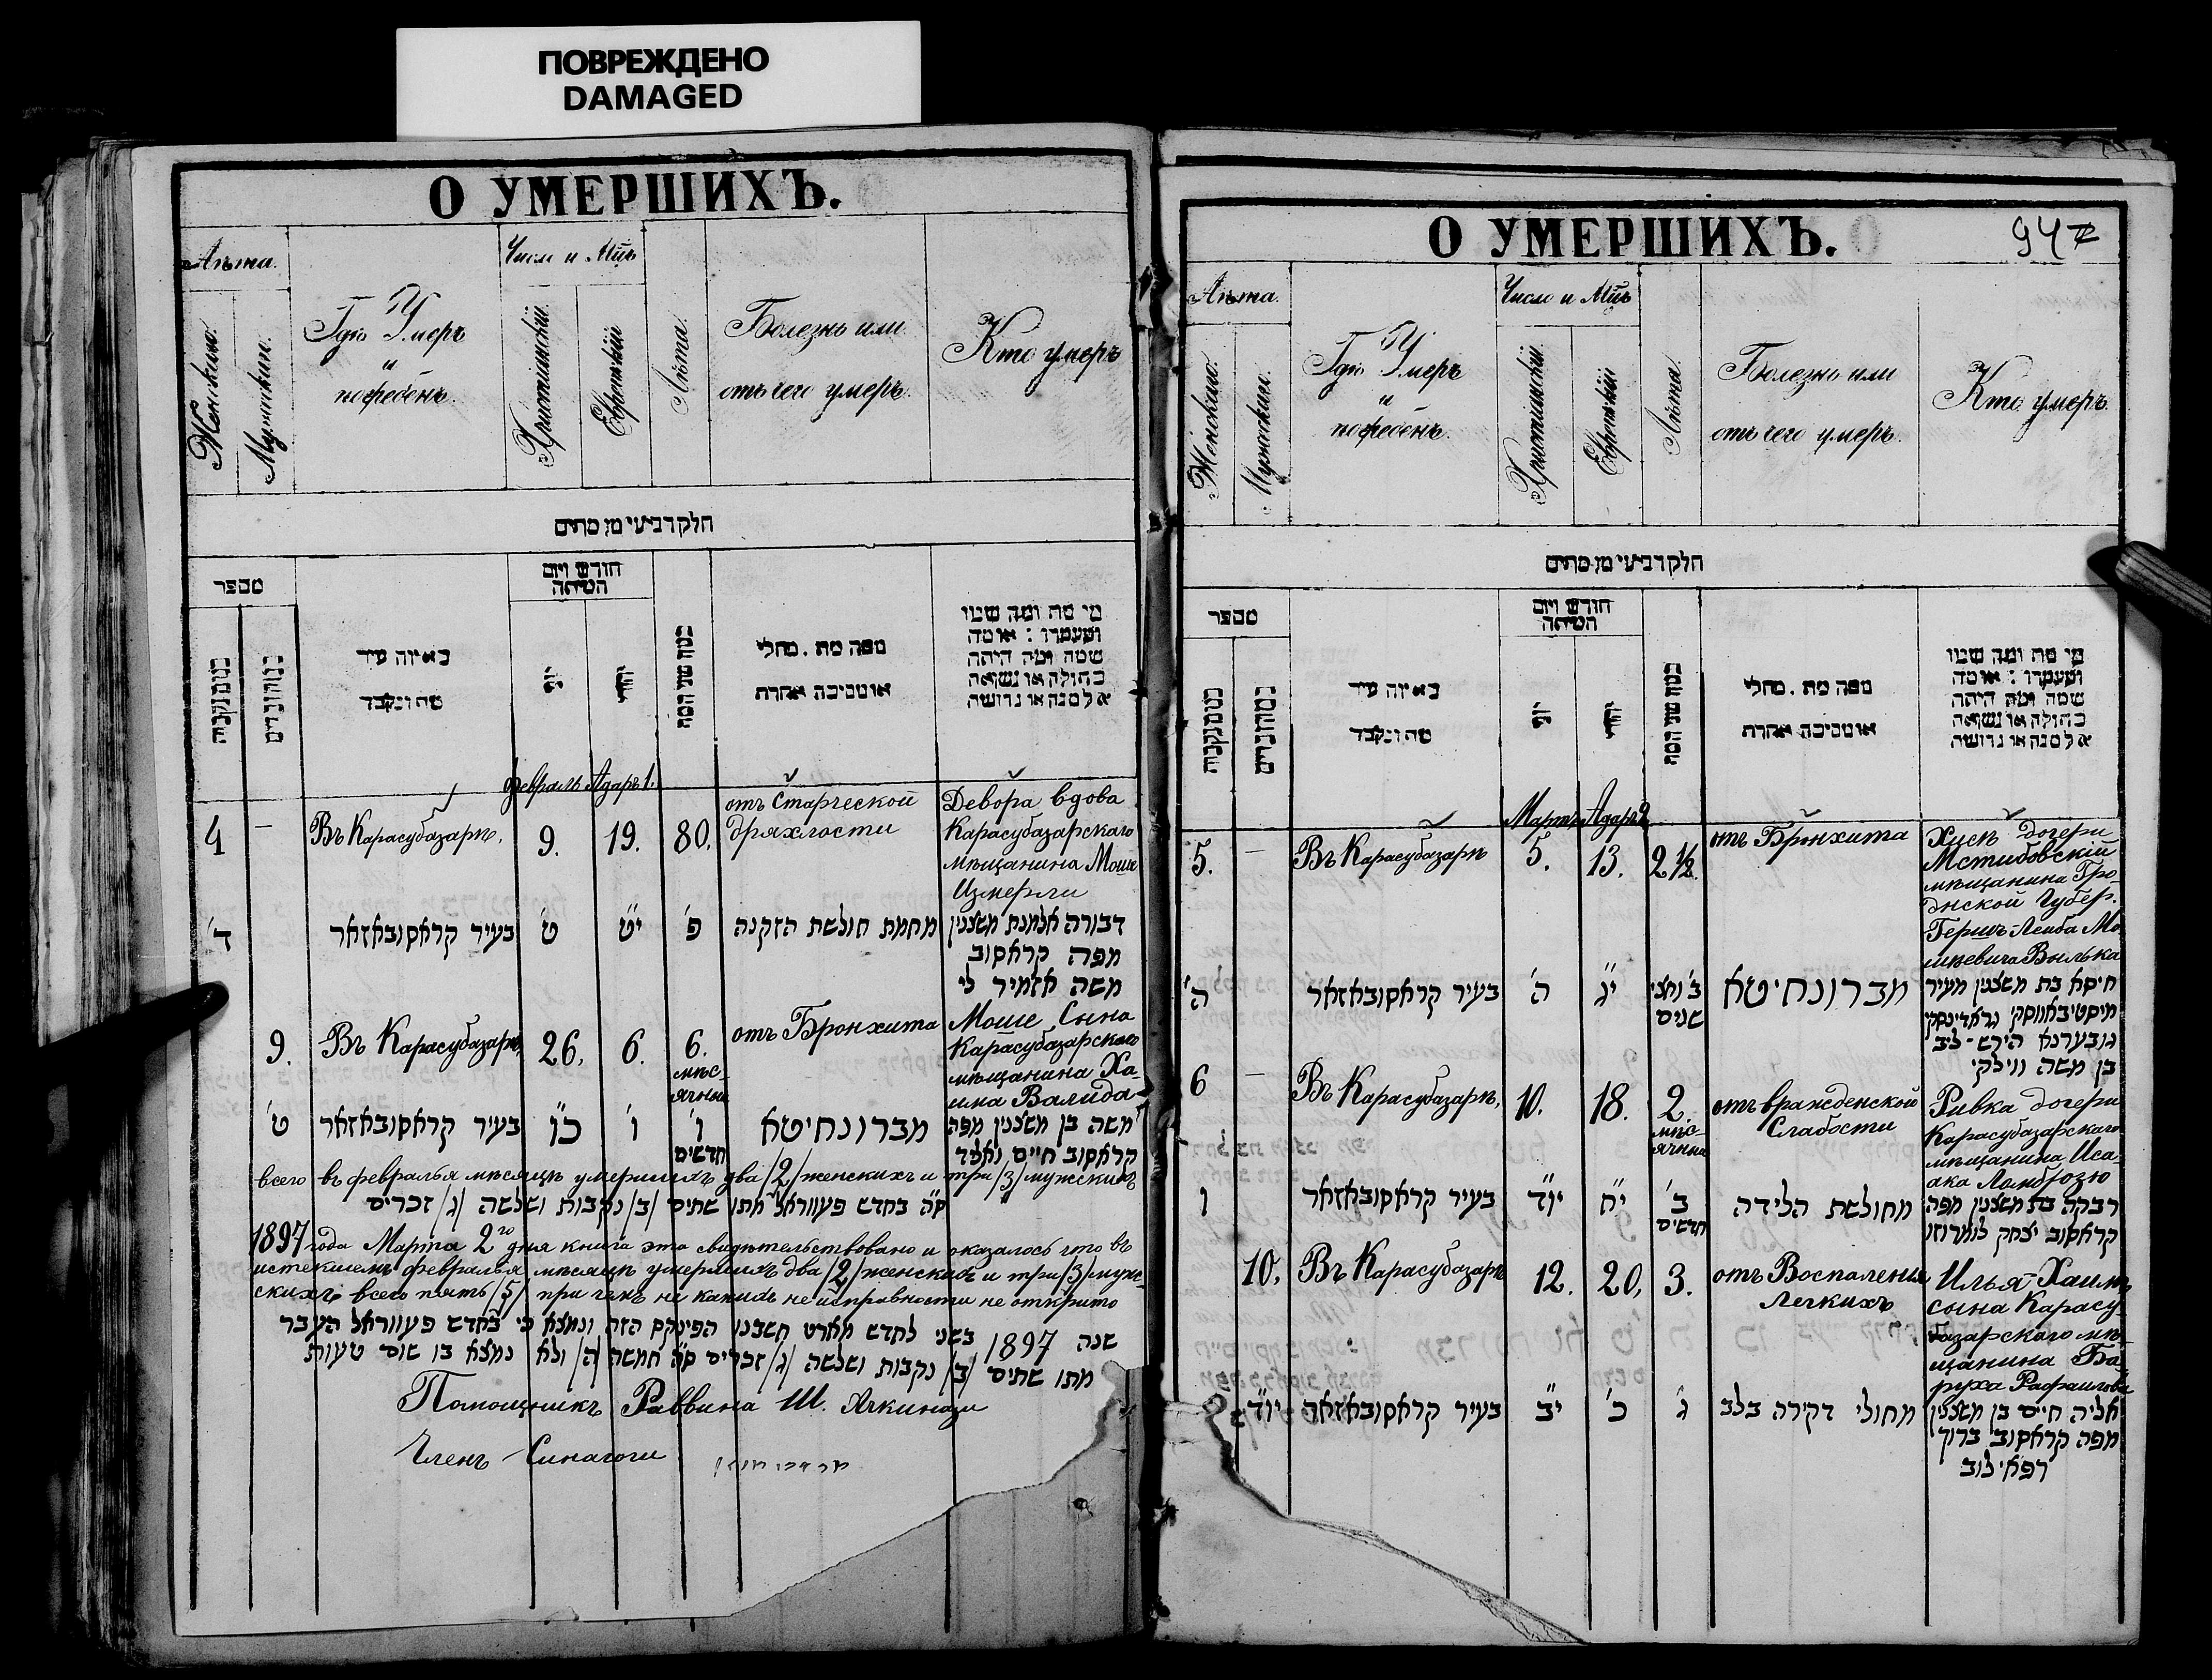 ПОВРЕЖДЕНО
DAMAGED
О УМЕРШИХЪ.
Лѣта.
Женскихъ.
Мужскихъ.
Гдѣ Умеръ
и
погребенъ.
Число и Мцъ
Христіянскій
Еврейскій
Лѣта.
Болезнь или
отъ чего умеръ.
Кто умеръ
חלק רביעי מן מתים
מספר
באיזה עיר
מת ונקבר
חודש ויום
המיתה
יוני
יהודי
כמה שני המת
מפה מת . מחלי
או מסיבה אחרת
מי מת ומה שמו
ומעמדו : או מה
שמה ומה היתה
בתולה או נשואה
אלמנה או גרושה
Февраль Адаръ 1.
4
—
Въ Карасубазарѣ,
9.
19.
80,
отъ Старческой
дряхлости
Девора вдова
Карасубазарскаго
мѣщанина Моше
Измерли
ד'
בעיר קראסובאזאר
ט'
י"ט
פ'
מחמת חולשת הזקנה
דבורה אלמנת משצנין
מפה קראסוב
משה אזמיר לי
9.
Въ Карасубазарѣ,
26,
6.
6.
мѣс-
ячный
отъ Бронхита
Моше Сына
Карасубазарскаго
мѣщанина Ха-
има Валида
ט'
בעיר קראסובאזאר
כ"ו
ו'
ו'
חדשים
מברונחיטא
משה בן משצנין מפה
קראסוב חיים ואליד
всего въ февралья мѣсяцѣ умершихъ два /2/ женскихъ и три /3/ мужскихъ
ס"ה בחדש פעווראל מתו שתים /ב/ נקבות ושלשה /ג/ זכרים
1897 года Марта 2го дня книга эта свидѣтельствовано и оказалось что въ
истекшемъ февралья мѣсяцѣ умершихъ два /2/ женскихъ и три /3/ муж-
скихъ всего пять /5/ при чемъ не какихъ не исправности не открыто
שנה 1897 בשני לחדש מארט חשבנו הפינקס הזה ונמצא כי בחדש פעווראל העבר
מתו שתים /ב/ נקבות ושלשה /ג/ זכרים ס"ה חמשה /ה/ ולא נמצא בו שום טעות
Помощникъ Раввина Ш. Ачкинази
Членъ Синагоги
О УМЕРШИХЪ.
94
Лѣта.
Женскихъ.
Мужскихъ.
Гдѣ Умеръ
и
погребенъ.
Число и Мцъ
Христіянскій
Еврейскій
Лѣта
Болезнь или
отъ чего умеръ.
Кто умеръ.
חלק רביעי מן מתים
מספר
באיזה עיר
מת ונקבר
חודש ויום
המיתה
יוני
יהודי
כמה שני המת
מפה מת . מחלי
או מסיבה אחרת
מי מת ומה שמו
ומעמדו : או מה
שמה ומה היתה
בתולה או נשואה
אלמנה או גרושה
Мартъ Адаръ 2
5.
—
Въ Карасубазарѣ
5.
13.
2½.
отъ Бронхита
дочери
Мстибовскій
мѣщанина Гро-
днской Губер.
Гершъ-Лейба Мо-
шевича Вилька
ה'
בעיר קראסובאזאר
ה'
י"ג
ב' וחצי
שנים
מברונחיטא
חיסא בת משצנין מעיר
מיסטיבאווסקי גראדינסקי
גובערנא הירש-ליב
בן משה ווילקי
6
—
Въ Карасубазарѣ,
10.
18.
2.
мѣс-
ячная
отъ врожденской
Слабости
Ривка дочери
Карасубазарскаго
мѣщанина Иса-
ака Ломброзо
ו
בעיר קראסובאזאר
יו"ד
י"ח
ב'
חדשים
מחולשת הלידה
רבקה בת משצנין מפה
קראסוב יצחק לומרוזו
10,
Въ Карасубазарѣ
12.
20,
3.
отъ Воспаленія
Легкихъ
Илья-Хаимъ
сына Карасу-
базарскаго мѣ-
щанина Ба-
руха Рафаилова
יו"ד
בעיר קראסובאזאר
י"ב
כ'
ג'
מחולי דקירה בלב
אליה חיים בן משצנין
מפה קראסוב ברוך
רפאילוב